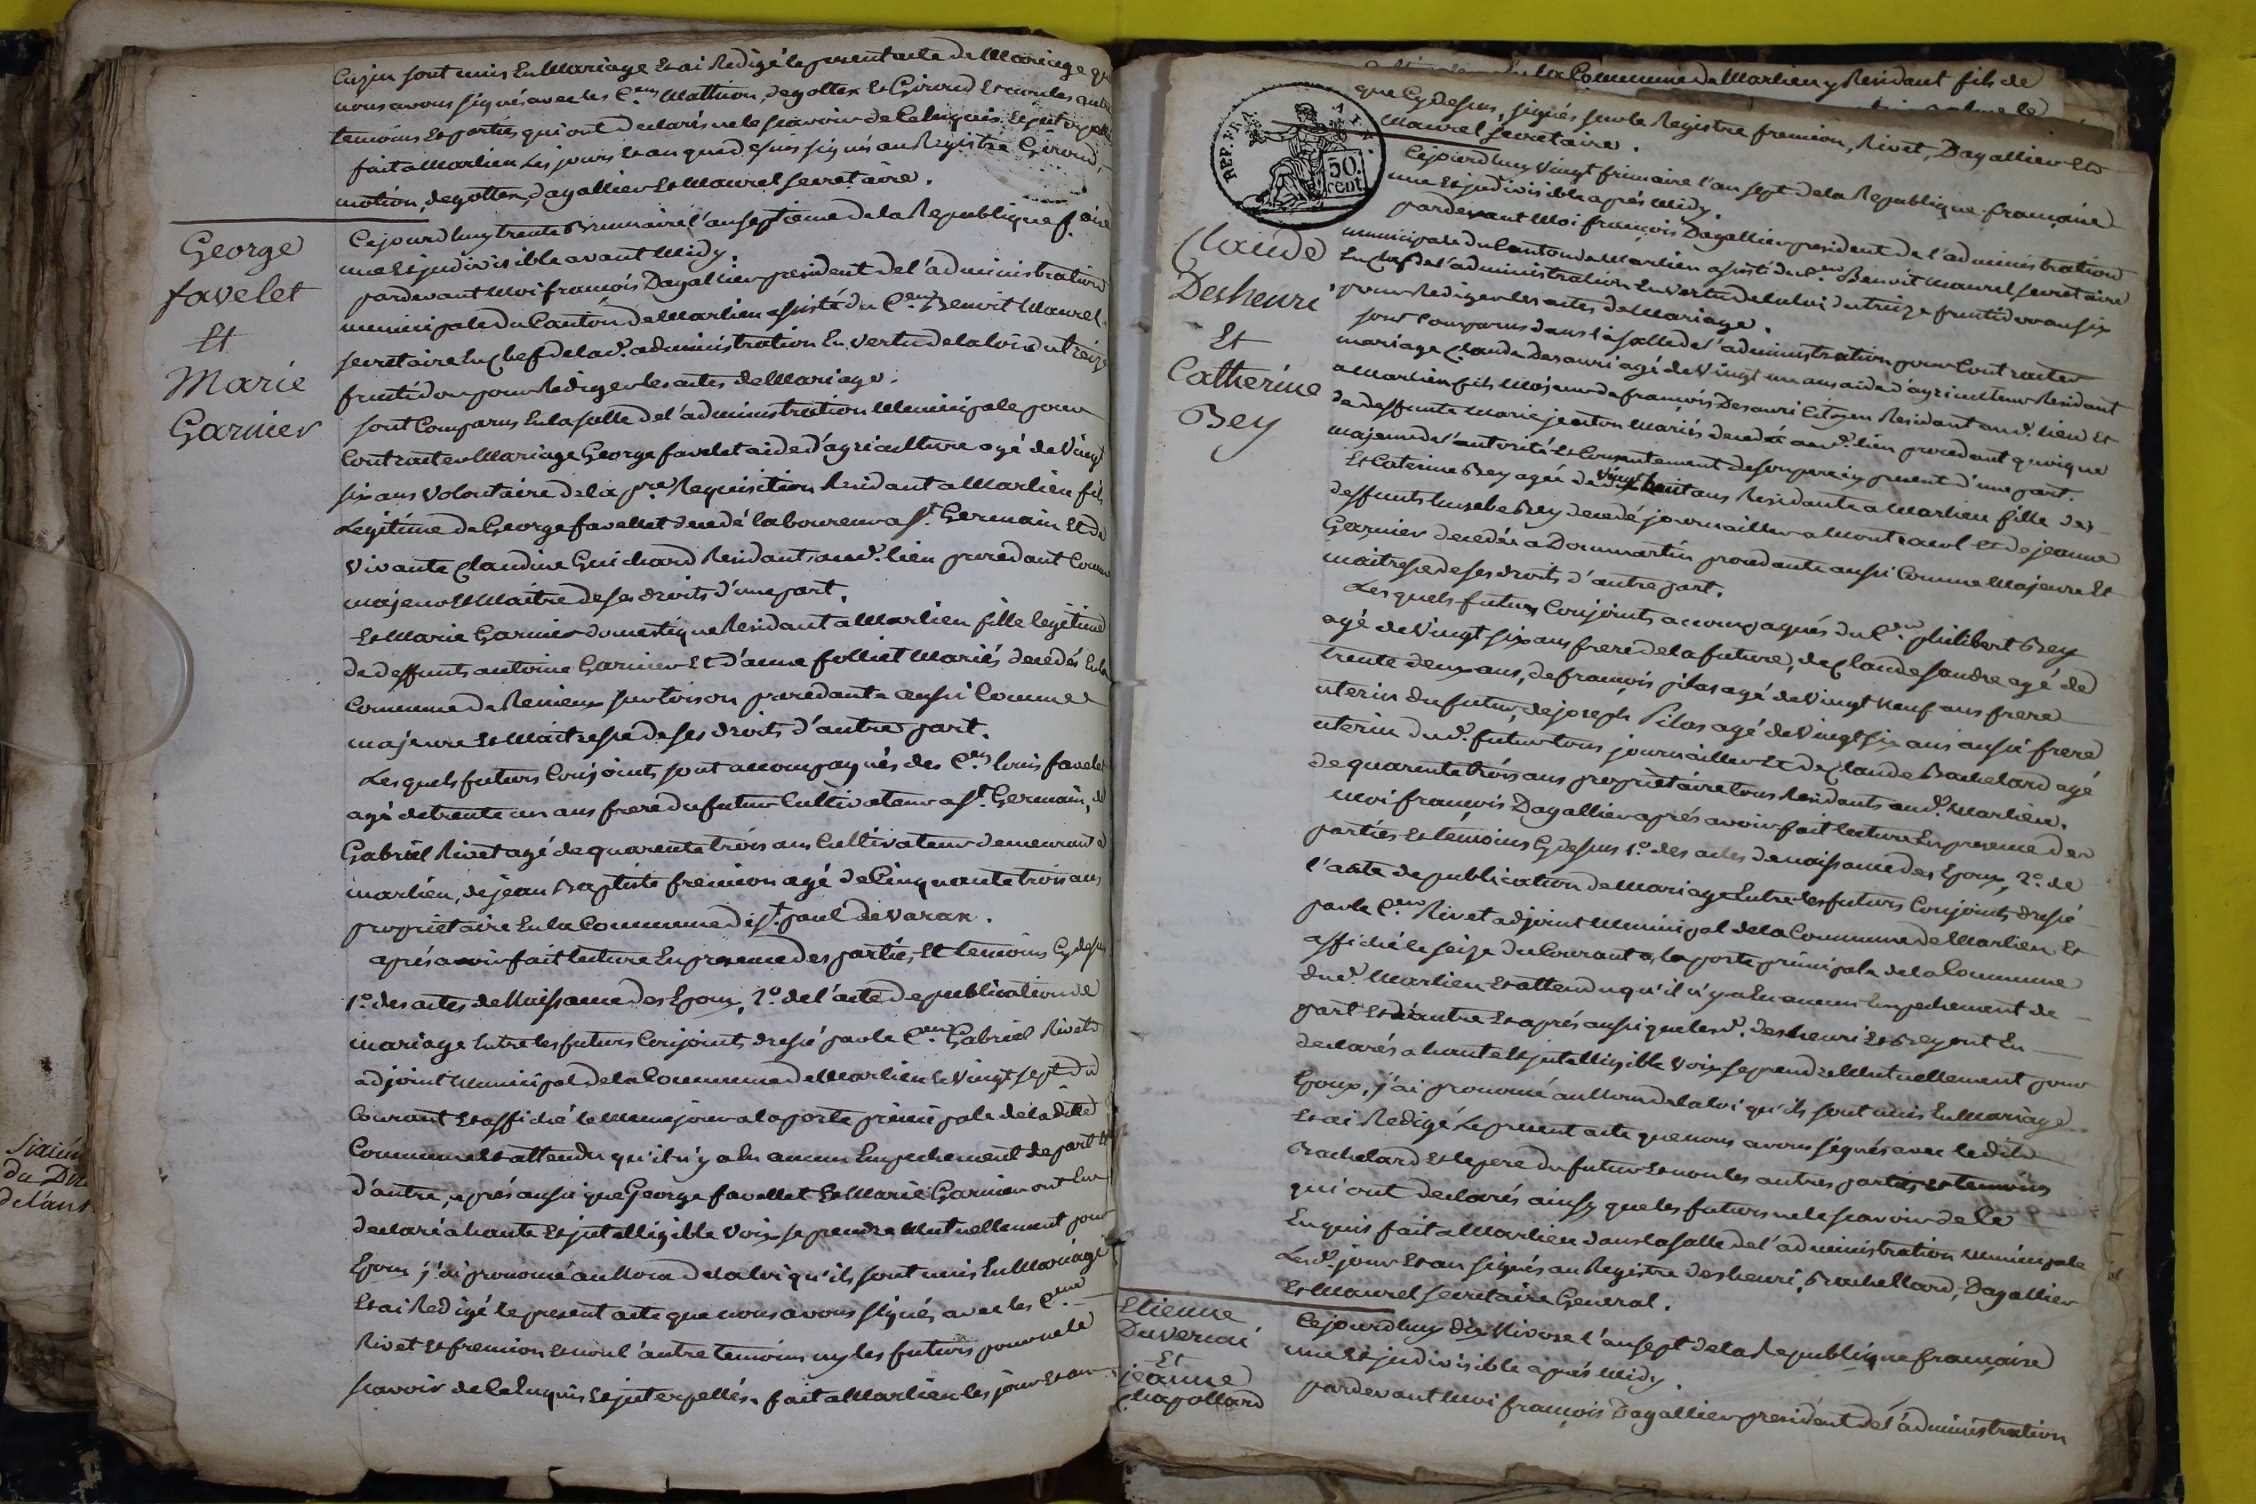 Cusin sont unis En Mariage Et ai Redigé le present acte de Mariage que
nous avons signés avec les C.ens Mathion, degottex Et Giroud Et non les autres
temoins Et parties qui ont declarés ne le scavoir de Ce Enquis Et interpellés
fait a Marlieu Les jours Et an que dessus signés au Registre Giroud,
motion, degottex, Dagallier Et Maurel secretaire.
George
favelet
Et
Marie
Garnier
Cejourdhuy trente Brumaire l'an septieme de la Republique f.aise
une Et indivisible avant Midy.
pardevant Moi francois Dagallier president de l'administration
municipale du Canton de Marlieu assisté du C.en Benoit Maurel
secretaire En Chef de lad.e administration En vertu de la loi du treize
fructidor pour Rediger les actes de Mariage.
sont Comparus En la salle de l'administration Municipale pour
Contracter Mariage George favelet aide d'agriculture agé de Vingt
six ans Volontaire de la p.re Requisition Residant a Marlieu fils
Legitime de George favellet decedé laboureur a S.t Germain Et de
Vivante Claudine Guichard Residants aud.t lieu procedant Comme
majeur Et Maitre de ses droits d'une part.
Et Marie Garnier domestique Residant a Marlieu fille legitime
de deffunts antoine Garnier Et d'anne folliet Mariés decedés En la
Commune de Renieux sur toison procedante aussi Comme
majeure Et Maitresse de ses droits d'autre part.
Lesquels futurs Conjoints sont accompagnés des C.ens louis favelet
agé de trente un ans frere du futur Cultivateur a S.t Germain, de
Gabriel Rivet agé de quarente trois ans Cultivateur demeurant a
marlieu, de jean Baptiste fremion agé de Cinquante trois ans
proprietaire En la Commune de S.t paul de Varax.
aprés avoir fait lecture En presence des parties Et temoins Cy dessus
1.o des actes de Naissance des Epoux, 2.o de l'acte de publication de
mariage Entre les futurs Conjoints dressé par le C.en Gabriel Rivet
adjoint Municipal de la Commune de Marlieu le Vingt sept du
Courant Et affiché le Meme jour a la porte principale de ladite
Commune Et attendu qu'il n'y a Eu aucun Empechement de part Et
d'autre, aprés aussi que George favellet Et Marie Garnier ont Eu
declaré a haute Et intelligible Voix se prendre Mutuellement pour
Epoux j'ai prononcé au Nom de la loi qu'ils sont unis En Mariage
Et ai Redigé le present acte que nous avons signés avec les C.ens
Rivet Et fremion Et non l'autre temoin ny les futurs pour ne le
scavoir de Ce Enquis Et interpellés. fait a Marlieu les jour Et an
En la Commune de Marlieu y Residant fils de
REP. FRA.
50.
cent
que Cy dessus, signés sur le Registre fremion, Rivet, Dagallier Et
Maurel secretaire.
Claude
Desheuri
Et
Catherine
Bey
Cejourdhuy Vingt frimaire l'an sept de la Republique francaise
une Et indivisible aprés Midy.
pardevant Moi francois Dagallier president de l'administration
municipale du Canton de Marlieu assisté du C.en Benoit Maurel secretaire
En Chef de l'administration En vertu de la loi du treize fructidor an six
pour Rediger les actes de Mariage.
sont Comparus dans la salle de l'administration pour Contracter
mariage Claude Desauri agé de Vingt un ans aide d'agriculteur Residant
a Marlieu fils Majeur de francois Desauri Citoyen Residant aud.t lieu Et
de deffunte Marie jeanton Mariés decedée aud.t lieu procedant quoique
majeur de l'autorité Et Consentement de son pere icy present d'une part.
Et Caterine Bey agée de Vingt huit ans Residante a Marlieu fille des
deffunts Eusebe Bey decedé journaillier a Montracol Et de jeanne
Garnier decedée a Dommartin procedante aussi Comme Majeure Et
maitresse de ses droits d'autre part.
Lesquels futurs Conjoints accompagnés du C.en philibert Bey
agé de Vingt six ans frere de la future, de Claude sandre agé de
trente deux ans, de francois pilas agé de Vingt Neuf ans frere
uterin du futur, de joseph Pilas agé de Vingt six ans aussi frere
uterin dud.t futur tous journaillier Et de Claude Bachelard agé
de quarente trois ans proprietaire tous Residants aud.t Marlieu.
Moi francois Dagallier aprés avoir fait lecture En presence des
parties Et temoins Cy dessus 1.o des actes de naissance des Epoux, 2.o de
l'acte de publication de Mariage Entre les futurs Conjoints dressé
par le C.en Rivet adjoint Municipal de la Commune de Marlieu Et
affiché le seize du Courant a la porte principale de la Commune
dud.t Marlieu Et attendu qu'il n'y a Eu aucun Empechement de
part Et d'autre Et aprés aussi que lesd.ts desheuri Et Bey ont Eu
declarés a haute Et intelligible Voix se prendre Mutuellement pour
Epoux, j'ai prononcé au Nom de la loi qu'ils sont unis En Mariage
Et ai Redigé Le present acte que nous avons signés avec ledit
Bachelard Et le pere du futur Et non les autres parties Et temoins
qui ont declarés ainsy que les futurs ne le scavoir de Ce
Enquis fait a Marlieu dans la salle de l'administration Municipale
Lesd.t jour Et an signés au Registre desheuri, Bachellard, Dagallier
Et Maurel secretaire General.
Etienne
Duvernai
Et
jeanne
Chapollard
Cejourdhuy dix Nivose l'an sept de la Republique francaise
une Et indivisible aprés Midy.
pardevant Moi francois Dagallier president de l'administration